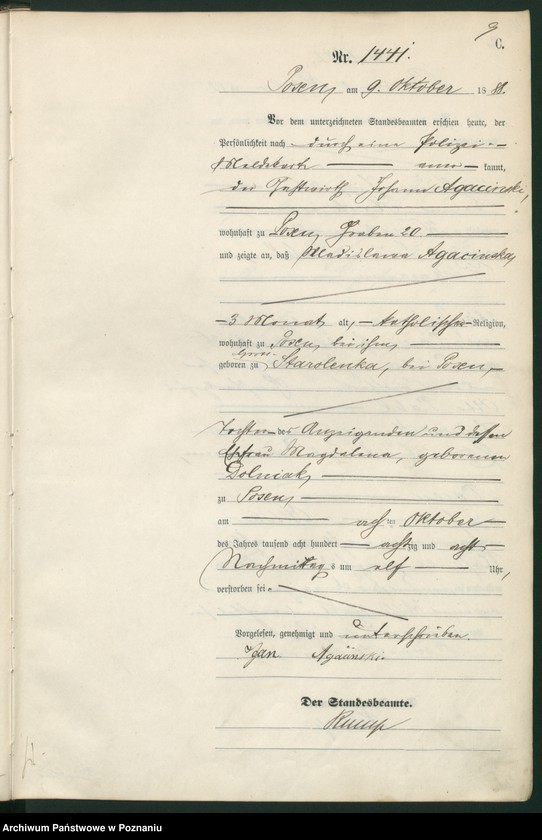 9
C.
Nr. 1441.
Posen, am 9. Oktober 1888.
Vor dem unterzeichneten Standesbeamten erschien heute, der
Persönlichkeit nach durch eine Polizei-
Meldekarte aner kannt,
der Gastwirth Johann Agacinski,
wohnhaft zu Posen, Graben 20
und zeigte an, daß Wladislawa Agacinska,
3 Monat alt, katholischer Religion,
wohnhaft zu Posen, bei ihm,
geboren zu Starolenka, bei Posen,
Tochter des Anzeigenden und dessen
Ehefrau Magdalena, geborenen
Dolniak,
zu Posen,
am acht ten Oktober
des Jahres tausend acht hundert achtzig und acht
Nachmittags um elf Uhr,
verstorben sei.
Vorgelesen, genehmigt und unterschrieben.
Jan Agacinski.
Der Standesbeamte.
Archiwum Państwowe w Poznaniu